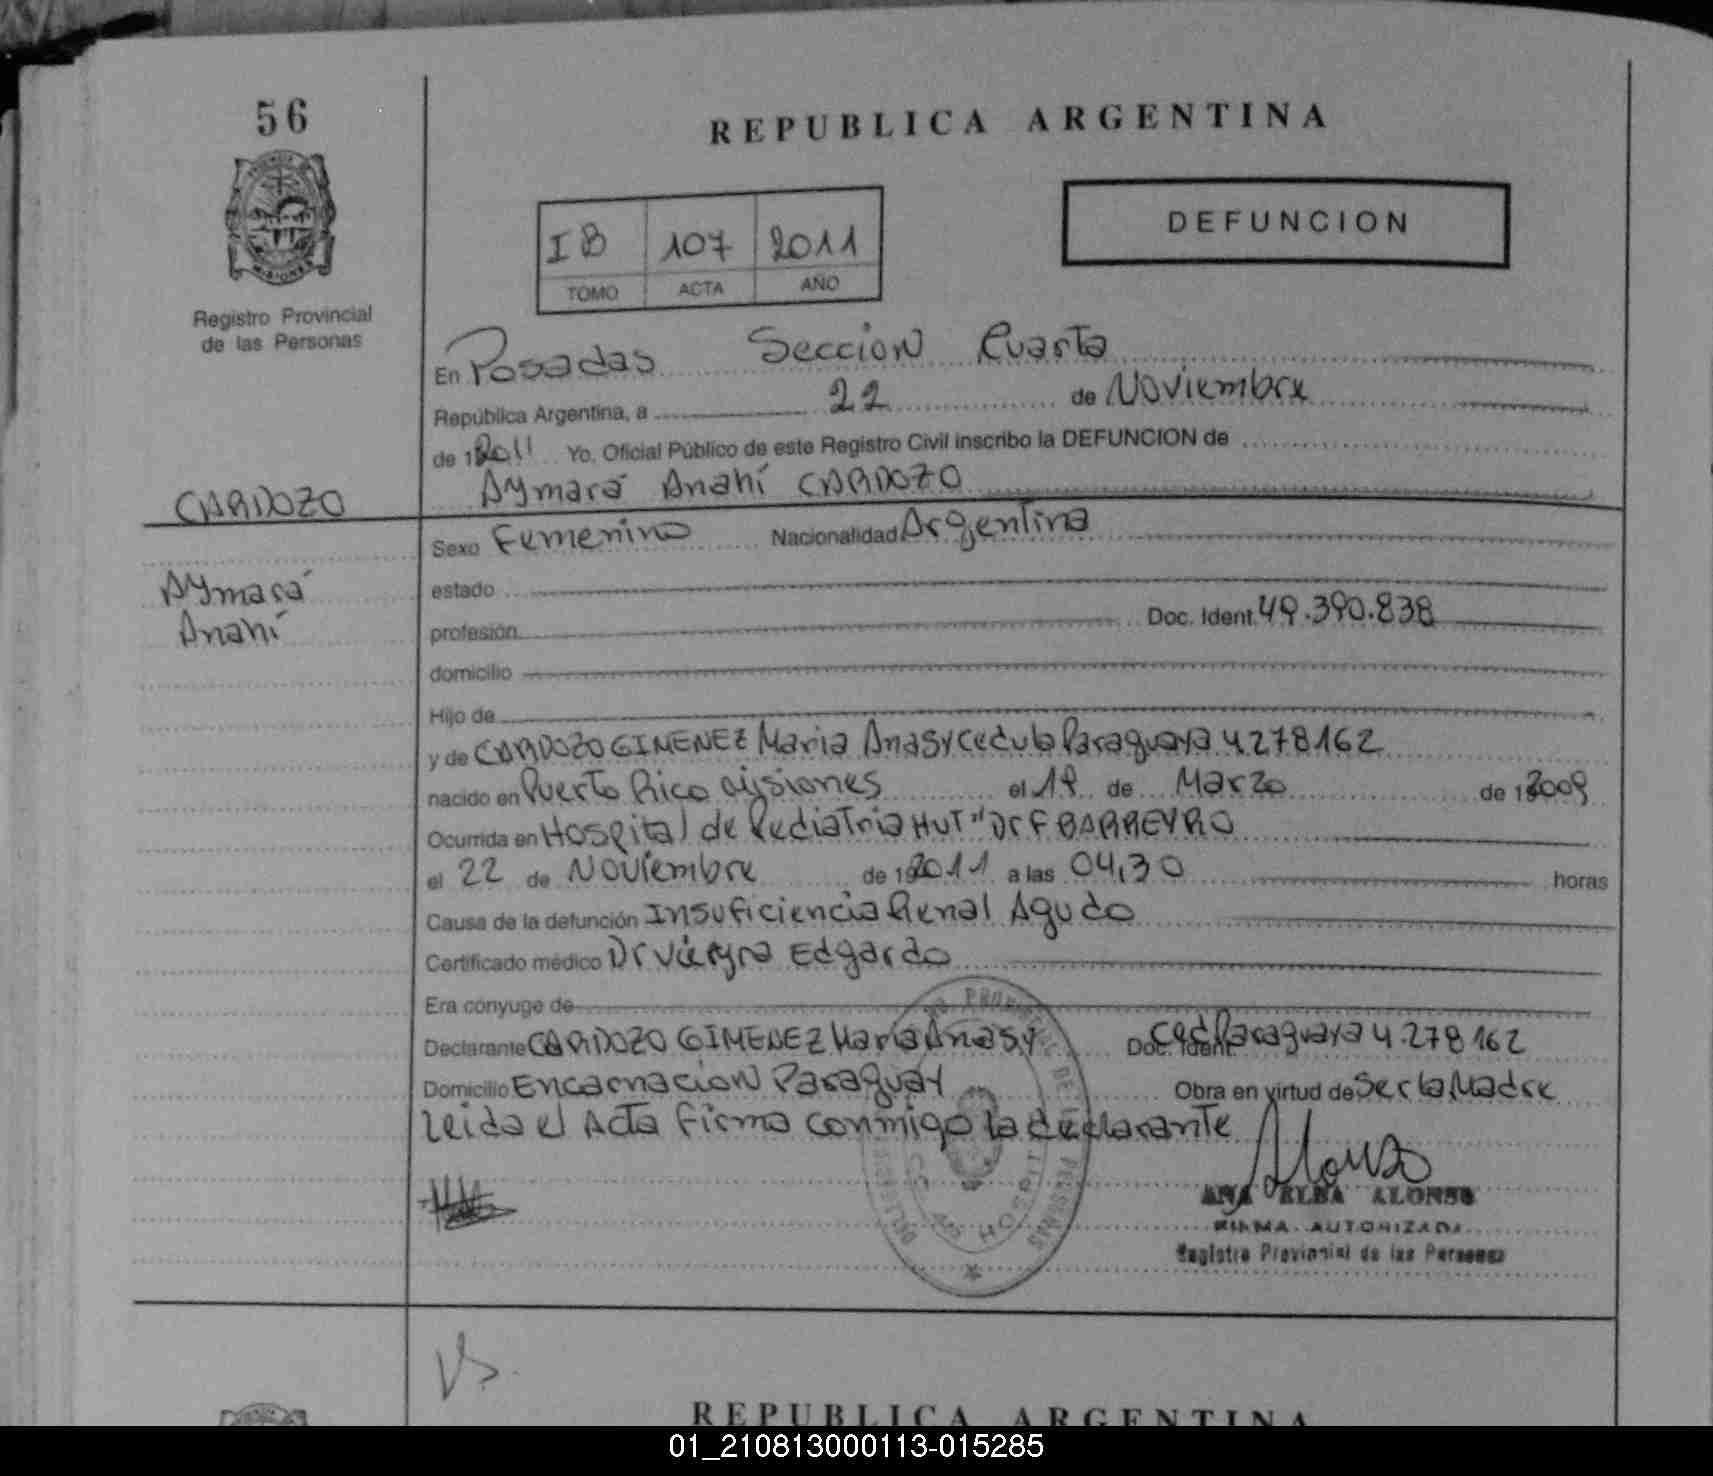 56
REPUBLICA ARGENTINA
DEFUNCION
IB 107 2011
TOMO ACTA AÑO
MISIONES
Registro Provincial
de las Personas
En Posadas Seccion Cuarta
República Argentina, a 22 de Noviembre
de 1 2011 Yo, Oficial Público de este Registro Civil inscribo la DEFUNCION de
CARDOZO
Aymará Anahí CARDOZO
Sexo Femenino Nacionalidad Argentina
Aymará
Anahí
estado
profesión Doc. Ident. 49.390.838
domicilio
Hijo de
y de CARDOZO GIMENEZ Maria Anasy cedula Paraguaya 4.278162
nacido en Puerto Rico Misiones el 19 de Marzo de 1 2009
Ocurrida en Hospital de Pediatria "Dr F BARREYRO
el 22 de Noviembre de 19 2011 a las 04,30 horas
Causa de la defunción Insuficiencia Renal Agudo
Certificado médico Dr Vieyra Edgardo
Era cónyuge de
Declarante CARDOZO GIMENEZ Maria Anasy Doc. Ident. Ced Paraguaya 4.278162
Domicilio Encarnacion Paraguay Obra en virtud de Ser la Madre
Leida el Acta firma conmigo la declarante
Alonso
ANA ELBA ALONSO
FIRMA AUTORIZADA
Registro Provincial de las Personas
REPUBLICA ARGENTINA
01_210813000113-015285